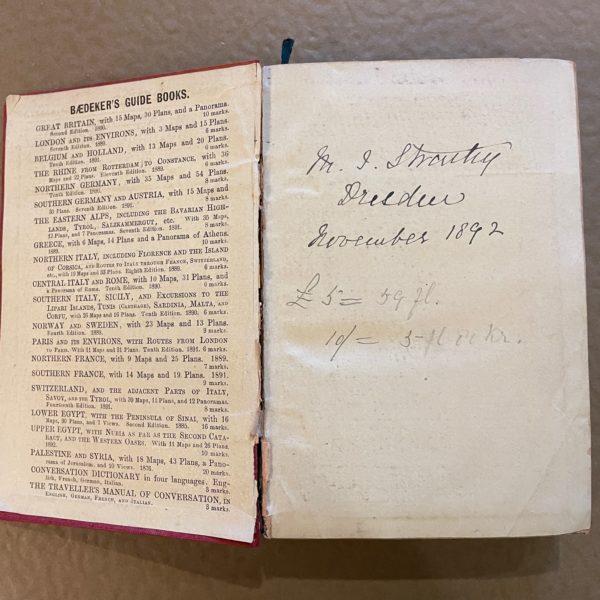 BÆDEKER'S GUIDE BOOKS.
GREAT BRITAIN, with 15 Maps, 30 Plans, and a Panorama.
Second Edition. 1890. 10 marks.
LONDON AND ITS ENVIRONS, with 3 Maps and 15 Plans.
Seventh Edition. 1889. 6 marks.
BELGIUM AND HOLLAND, with 13 Maps and 20 Plans.
Tenth Edition. 1891. 6 marks.
THE RHINE FROM ROTTERDAM TO CONSTANCE, with 36
Maps and 22 Plans. Eleventh Edition. 1889. 6 marks.
NORTHERN GERMANY, with 35 Maps and 54 Plans.
Tenth Edition. 1890. 8 marks.
SOUTHERN GERMANY AND AUSTRIA, with 15 Maps and
30 Plans. Seventh Edition. 1891. 8 marks.
THE EASTERN ALPS, INCLUDING THE BAVARIAN HIGH-
LANDS, TYROL, SALZKAMMERGUT, etc. With 35 Maps,
12 Plans, and 7 Panoramas. Seventh Edition. 1891. 8 marks.
GREECE, with 6 Maps, 14 Plans and a Panorama of Athens.
1889. 10 marks.
NORTHERN ITALY, INCLUDING FLORENCE AND THE ISLAND
OF CORSICA, AND ROUTES TO ITALY THROUGH FRANCE, SWITZERLAND,
etc., with 19 Maps and 35 Plans. Eighth Edition. 1889. 6 marks.
CENTRAL ITALY AND ROME, with 10 Maps, 31 Plans, and
a Panorama of Rome. Tenth Edition. 1890. 6 marks.
SOUTHERN ITALY, SICILY, AND EXCURSIONS TO THE
LIPARI ISLANDS, TUNIS (CARTHAGE), SARDINIA, MALTA, AND
CORFU, with 26 Maps and 16 Plans. Tenth Edition. 1890. 6 marks.
NORWAY AND SWEDEN, with 23 Maps and 13 Plans.
Fourth Edition. 1889. 9 marks.
PARIS AND ITS ENVIRONS, WITH ROUTES FROM LONDON
TO PARIS. With 11 Maps and 31 Plans. Tenth Edition. 1891. 6 marks.
NORTHERN FRANCE, with 9 Maps and 25 Plans. 1889.
7 marks.
SOUTHERN FRANCE, with 14 Maps and 19 Plans. 1891.
9 marks.
SWITZERLAND, AND THE ADJACENT PARTS OF ITALY,
SAVOY, AND THE TYROL, with 39 Maps, 11 Plans, and 12 Panoramas.
Fourteenth Edition. 1891. 8 marks.
LOWER EGYPT, WITH THE PENINSULA OF SINAI, with 16
Maps, 30 Plans, and 7 Views. Second Edition. 1885. 16 marks.
UPPER EGYPT, WITH NUBIA AS FAR AS THE SECOND CATA-
RACT, AND THE WESTERN OASES. With 11 Maps and 26 Plans.
1892. 10 marks.
PALESTINE AND SYRIA, with 18 Maps, 43 Plans, a Pano-
rama of Jerusalem, and 10 Views. 1876. 20 marks.
CONVERSATION DICTIONARY in four languages, Eng-
lish, French, German, Italian. 3 marks.
THE TRAVELLER'S MANUAL OF CONVERSATION, IN
ENGLISH, GERMAN, FRENCH, AND ITALIAN. 3 marks.
M. I. Strathy
Dresden
November 1892
£5 = 59 fl.
10/ = 5 fl kr.